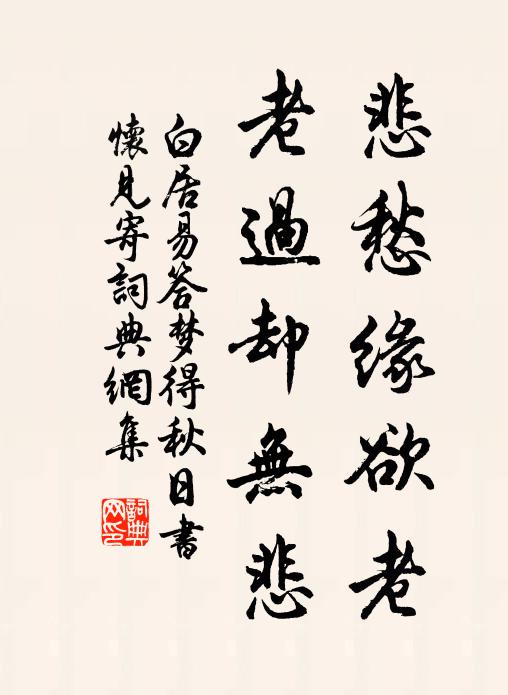 悲愁缘欲老
老過却無悲
白居易答梦得秋日書
懷見寄詞典網集
詞典网印